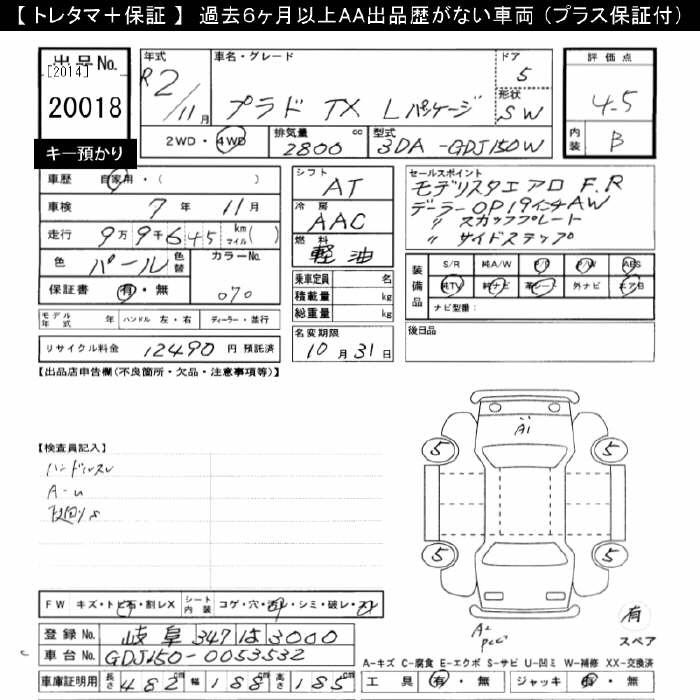 【 トレタマ＋保証 】 過去6ヶ月以上AA出品歴がない車両（プラス保証付）
出品No.
[2014]
20018
キー預かり
年式
R2/11月
車名・グレード
プラド TX Lパッケージ
ドア
5
形状
SW
評価点
4.5
内装
B
2WD・4WD
排気量
2800 cc
型式
3DA-GDJ150W
車歴 自家用・( )
車検 7年 11月
走行 9万9千645 km マイル( )
色 パール 色替
カラーNo.
070
保証書 有・無
シフト
AT
冷房
AAC
燃料
軽油
乗車定員 名
積載量 kg
総重量 kg
セールスポイント
モデリスタエアロ F.R
ディーラーOP19インチAW
〃 スカッフプレート
〃 サイドステップ
装備品
S/R 純A/W P/S P/W ABS
純TV 純ナビ 革シート 外ナビ エアB
ナビ型番:
モデル年式 年 ハンドル 左・右 ディーラー・並行
リサイクル料金 12490 円 預託済
名変期限
10月31日
後日品
【出品店申告欄(不良箇所・欠品・注意事項等)】
【検査員記入】
ハンドルスレ
A-u
A1
5
5
5
5
A2
有
スペア
FW キズ・トビ石・割レX シート内装 コゲ・穴・汚レ・シミ・破レ・スレ
登録No. 岐阜 347 は 3000
車台No. GDJ150-0053532
車庫証明用 長さ 482cm 幅 188cm 高さ 185cm
A-キズ C-腐食 E-エクボ S-サビ U-凹ミ W-補修 XX-交換済
工具 有・無 ジャッキ 有・無